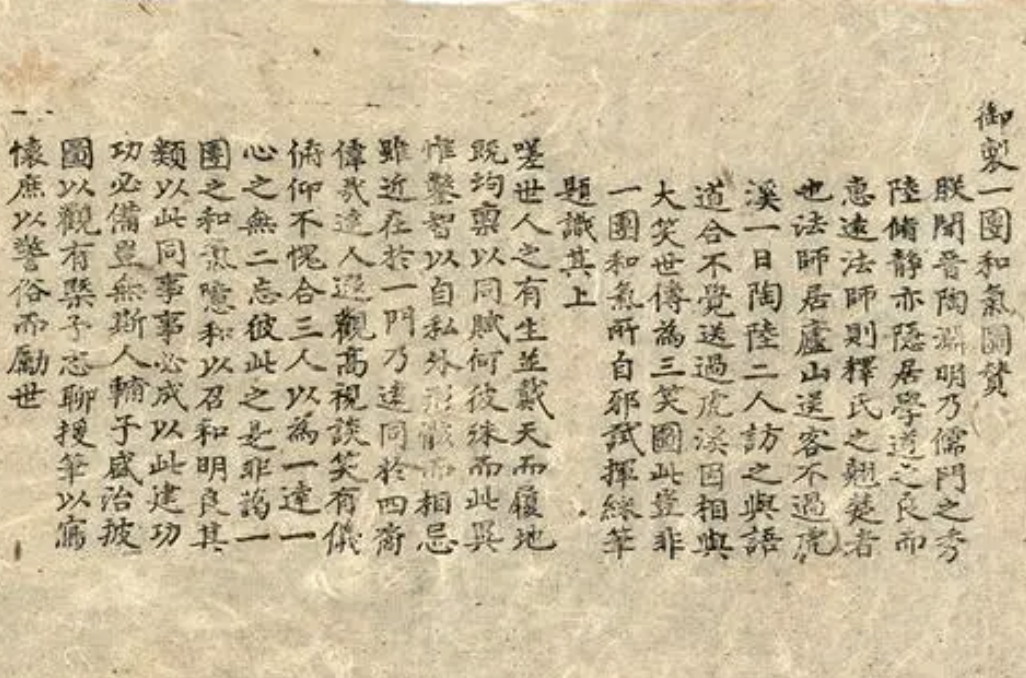 御製一團和氣圖贊
朕聞晉陶淵明乃儒門之秀
陸脩靜亦隱居學道之良而
惠遠法師則釋氏之翹楚者
也法師居廬山送客不過虎
溪一日陶陸二人訪之與語
道合不覺送過虎溪因相與
大笑世傳為三笑圖此豈非
一團和氣所自邪試揮綵筆
題識其上
嗟世人之有生並戴天而履地
既均禀以同賦何彼殊而此異
惟鑿智以自私外形骸而相忌
雖近在於一門乃遠同於四裔
偉哉達人遐觀高視談笑有儀
俯仰不愧合三人以為一達一
心之無二忘彼此之是非藹一
團之和氣噫和以召和明良其
類以此同事事必成以此建功
功必備豈無斯人輔予盛治披
圖以觀有槩予志聊援筆以寫
懷庶以警俗而勵世